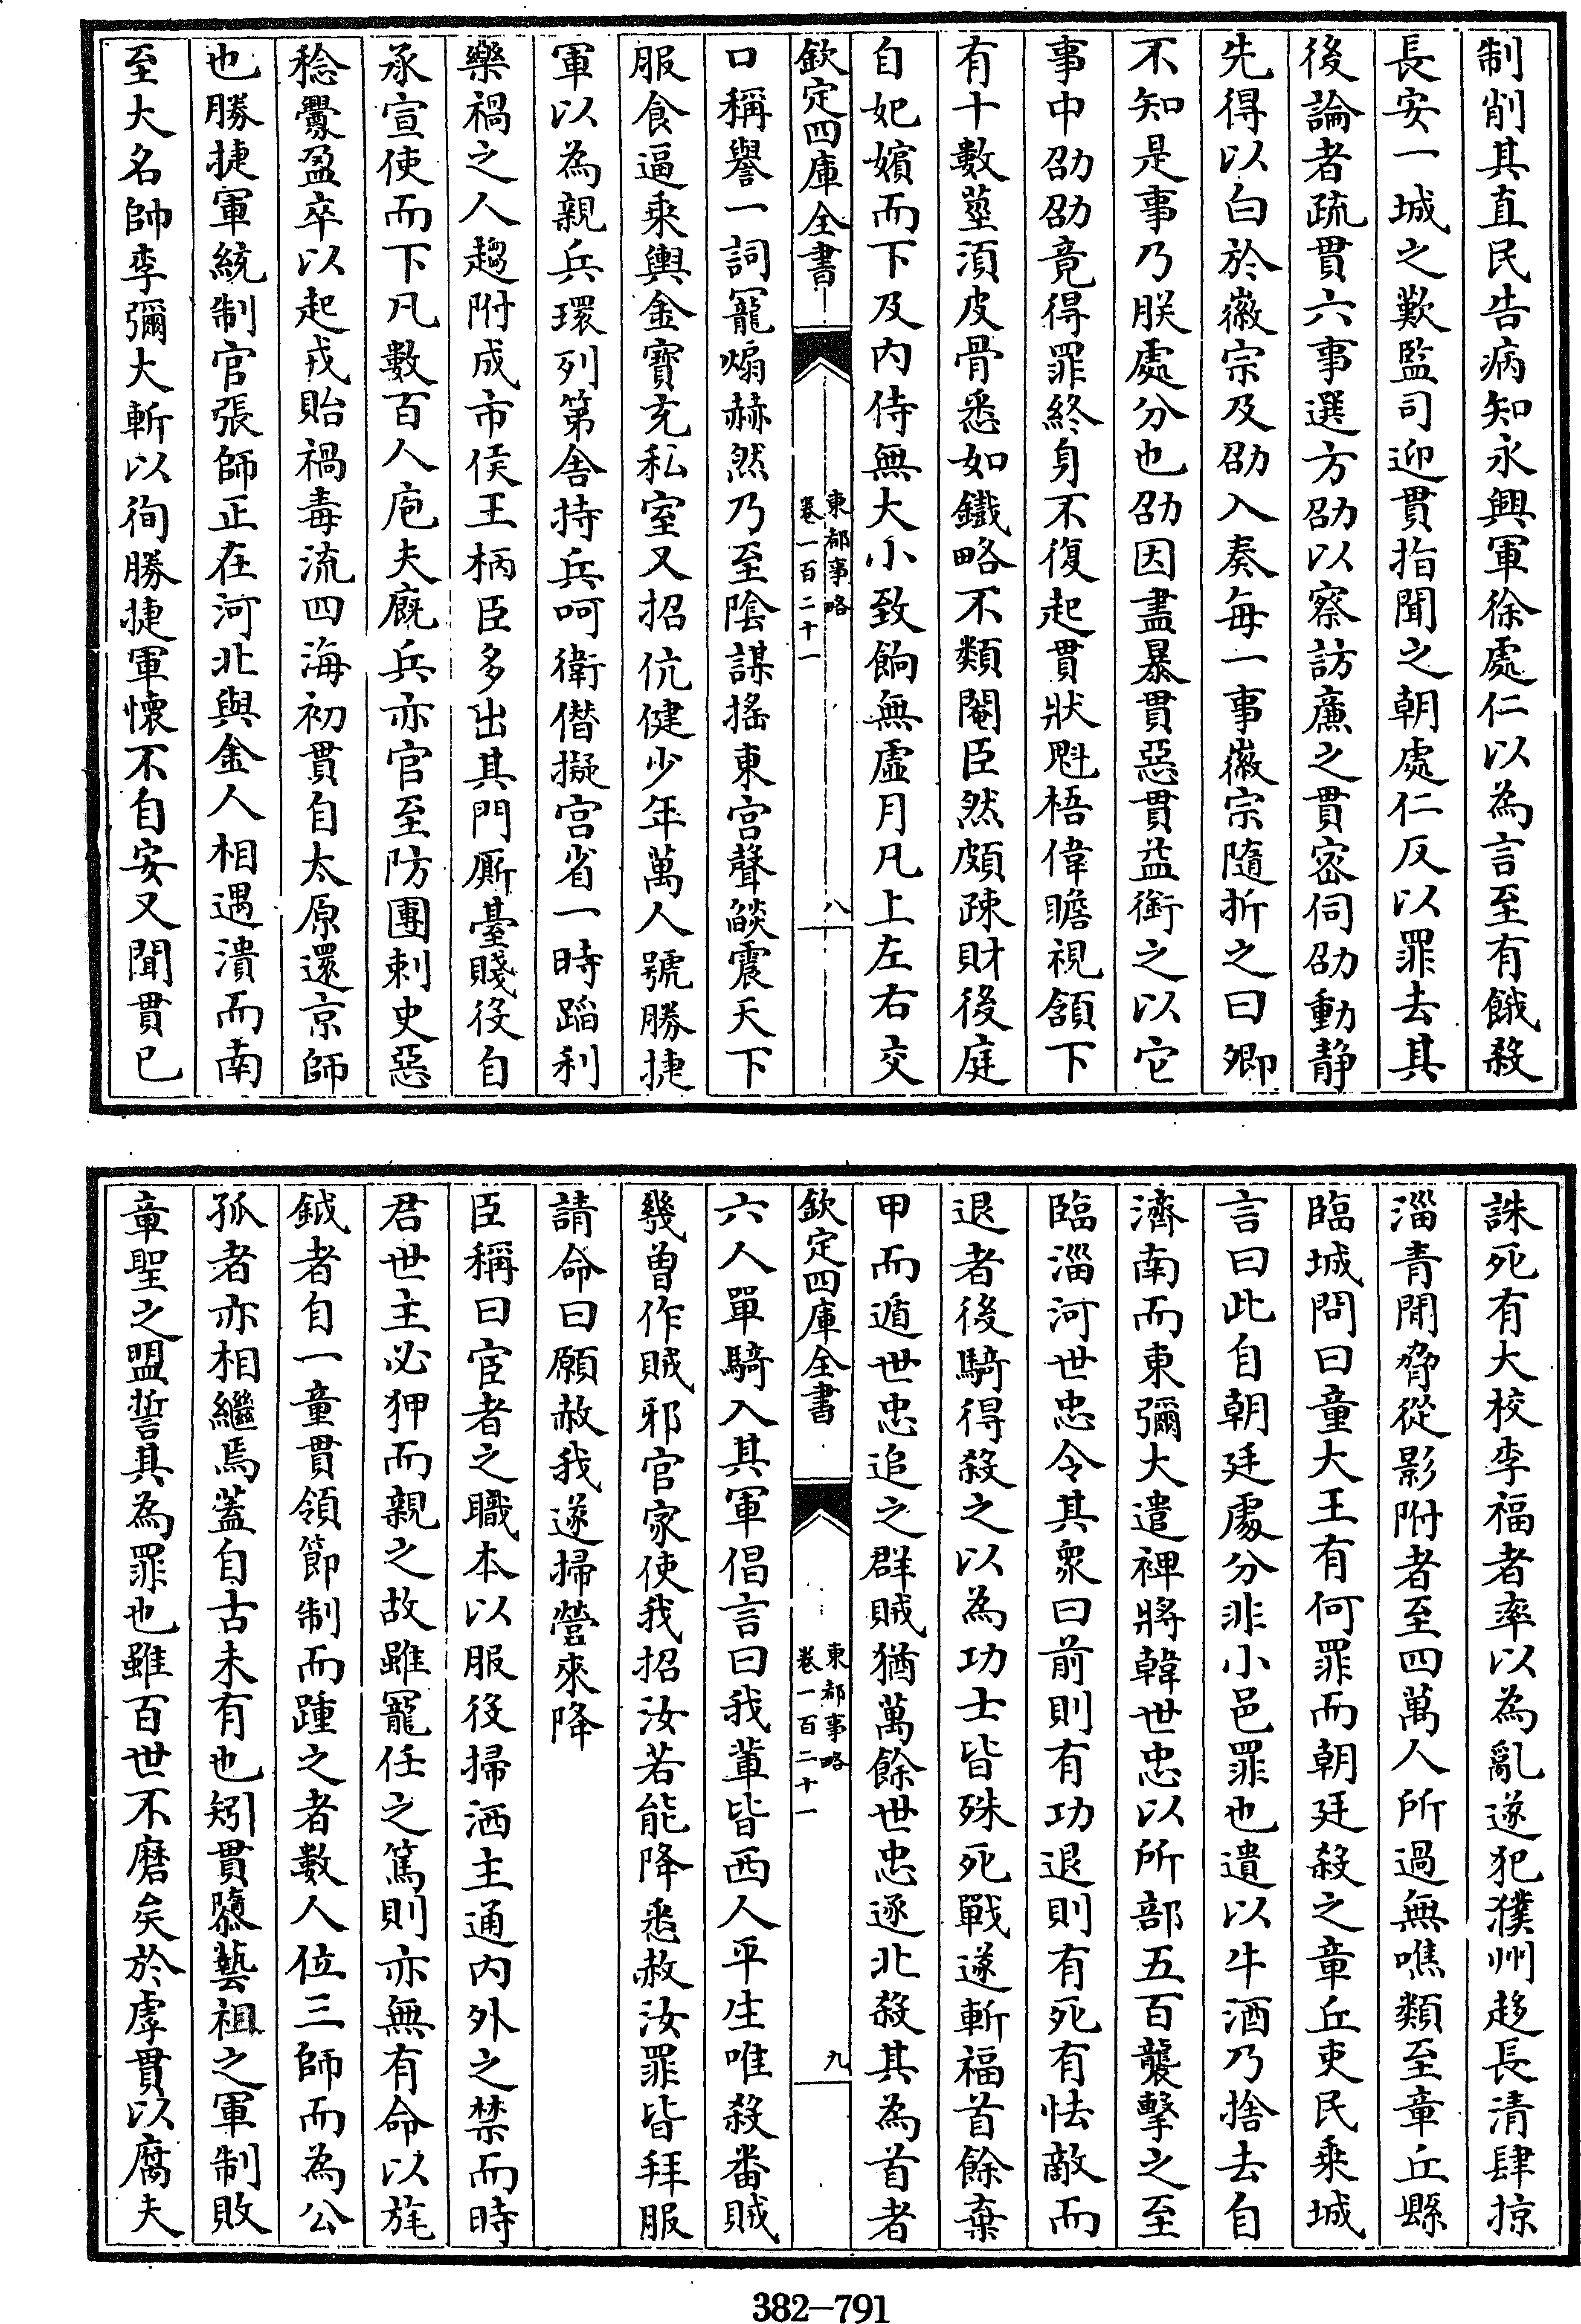 制削其直民告病知永興軍徐處仁以為言至有餓殺
長安一城之歎監司迎貫指聞之朝處仁反以罪去其
後論者疏貫六事選方劭以察訪亷之貫宻伺劭動静
先得以白於徽宗及劭入奏每一事徽宗隨折之曰卿
不知是事乃朕處分也劭因盡暴貫惡貫益銜之以它
事中劭劭竟得罪終身不復起貫狀魁梧偉瞻視頷下
有十數莖湏皮骨悉如鐵略不類閹臣然頗疎財後庭
自妃嬪而下及内侍無大小致餉無虚月凡上左右交
欽定四庫全書
東都事略
卷一百二十一
八
口稱譽一詞寵煽赫然乃至陰謀搖東宫聲燄震天下
服食逼乘輿金寶充私室又招伉健少年萬人號勝捷
軍以為親兵環列第舍持兵呵衛僭擬宫省一時蹈利
樂禍之人趨附成市侯王柄臣多出其門厮臺賤役自
承宣使而下凡數百人庖夫廐兵亦官至防團刺史惡
稔釁盈卒以起戎貽禍毒流四海初貫自太原還京師
也勝捷軍統制官張師正在河北與金人相遇潰而南
至大名帥李彌大斬以徇勝捷軍懷不自安又聞貫已
誅死有大校李福者率以為亂遂犯濮州趍長清肆掠
淄青間脅從影附者至四萬人所過無噍類至章丘縣
臨城問曰童大王有何罪而朝廷殺之章丘吏民乗城
言曰此自朝廷處分非小邑罪也遺以牛酒乃捨去自
濟南而東彌大遣裨將韓世忠以所部五百襲擊之至
臨淄河世忠令其衆曰前則有功退則有死有怯敵而
退者後騎得殺之以為功士皆殊死戰遂斬福首餘棄
甲而遁世忠追之群賊猶萬餘世忠逐北殺其為首者
欽定四庫全書
東都事略
卷一百二十一
九
六人單騎入其軍倡言曰我輩皆西人平生唯殺番賊
幾曽作賊邪官家使我招汝若能降悉赦汝罪皆拜服
請命曰願赦我遂掃營來降
臣稱曰宦者之職本以服役掃洒主通内外之禁而時
君世主必狎而親之故雖寵任之篤則亦無有命以旄
鉞者自一童貫領節制而踵之者數人位三師而為公
孤者亦相繼焉蓋自古未有也矧貫隳藝祖之軍制敗
章聖之盟誓其為罪也雖百世不磨矣於虖貫以腐夫
382-791